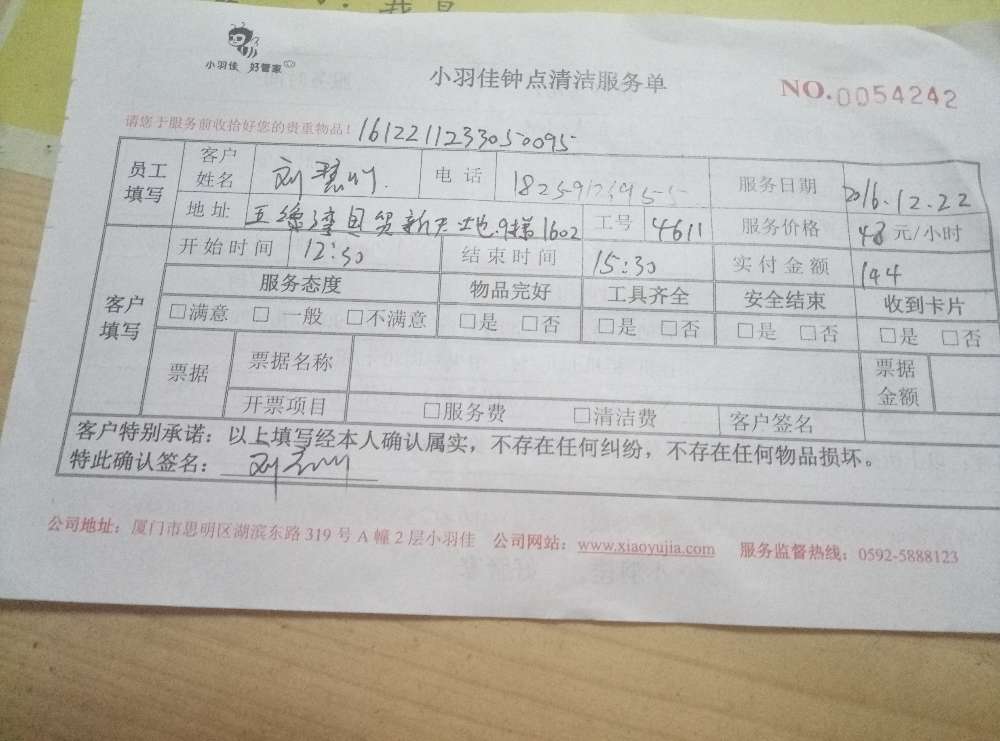 小羽佳 好管家
小羽佳钟点清洁服务单
NO.0054242
请您于服务前收恰好您的贵重物品！ 161221123305​0095
员工填写 客户姓名 刘慧川 电话 服务日期 2016.12.22
地址 五缘湾国贸新天地9梯1602 工号 4611 服务价格 48 元/小时
客户填写 开始时间 12:30 结束时间 15:30 实付金额 144
服务态度 物品完好 工具齐全 安全结束 收到卡片
□满意 □ 一般 □不满意 □是 □否 □是 □否 □是 □否 □是 □否
票据 票据名称 票据金额
开票项目 □服务费 □清洁费 客户签名
客户特别承诺：以上填写经本人确认属实，不存在任何纠纷，不存在任何物品损坏。
特此确认签名：
公司地址：厦门市思明区湖滨东路 319 号 A 幢 2 层小羽佳 公司网站：www.xiaoyujia.com 服务监督热线：0592-5888123